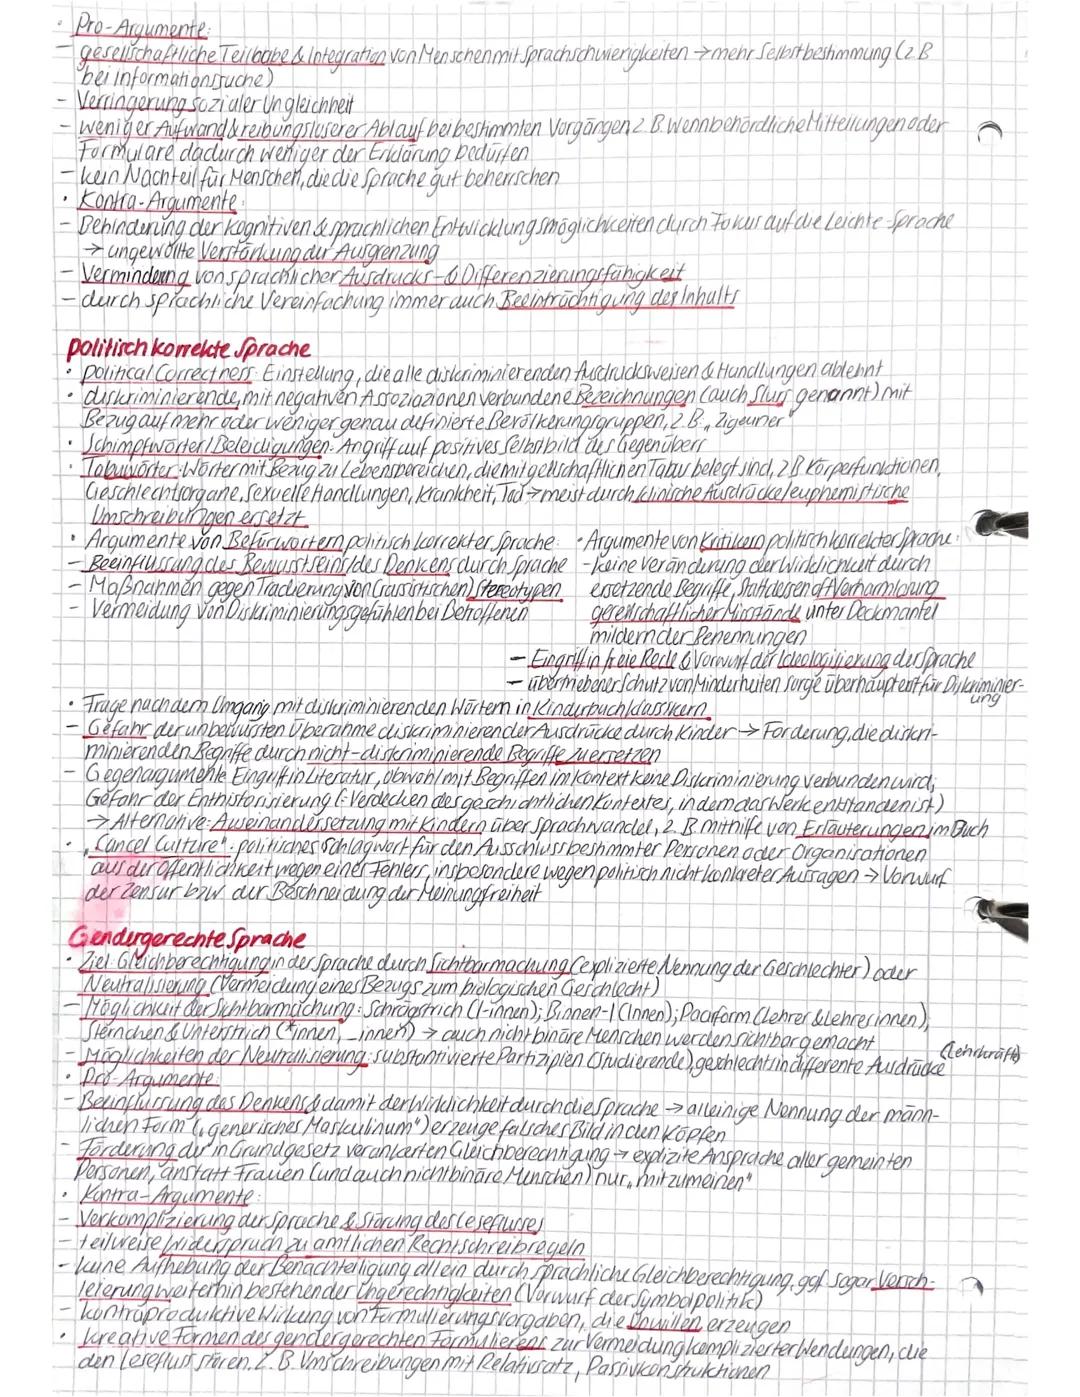 · Pro-Argumente:
- gesellschaftliche Teilhabe & Integration von Menschen mit Sprachschwierigkeiten → mehr Selbstbestimmung (z.B
bei informationssuche)
- Verringerung sozialer Ungleichheit
- weniger Aufwand & reibungsloserer Ablauf bei bestimmten Vorgängen z.B. wenn behördliche Mitteilungen oder
Formulare dadurch weniger der Erklärung bedürfen
- kein Nachteil für Menschen, die die Sprache gut beherrschen
· Kontra-Argumente:
- Behinderung der kognitiven & sprachlichen Entwicklungsmöglichkeiten durch Fokus auf die Leichte Sprache
→ ungewollte Verstärkung der Ausgrenzung
- Verminderung von sprachlicher Ausdrucks- & Differenzierungsfähigkeit
- durch sprachliche Vereinfachung immer auch Beeinträchtigung des Inhalts
politisch korrekte Sprache
· political Correctness: Einstellung, die alle diskriminierenden Ausdrucksweisen & Handlungen ablehnt
· diskriminierende, mit negativen Assoziazionen verbundene Bezeichnungen (auch Slurs genannt) mit
Bezug auf mehr oder weniger genau definierte Bevölkerungsgruppen, z.B. „Zigeuner"
· Schimpfwörter/Beleidigungen: Angriff auf positives Selbstbild des Gegenübers
· Tabuwörter: Wörter mit Bezug zu Lebensbereichen, die mit gellschaftlichen Tabus belegt sind, z.B Körperfunktionen,
Geschlechtsorgane, sexuelle Handlungen, Krankheit, Tod → meist durch klinische Ausdrücke/euphemistische
Umschreibungen ersetzt
· Argumente von Befürwortern politisch korrekter Sprache:
- Beeinflussung des Bewusstseins/des Denkens durch Sprache
- Maßnahmen gegen Tradierung von (rassistischen) Stereotypen
- Vermeidung von Diskriminierungsgefühlen bei Betroffenen
· Argumente von Kritikern politisch korrekter Sprache:
- keine Veränderung der Wirklichkeit durch
ersetzende Begriffe, stattdessen oft Verharmlosung
gesellschaftlicher Misstände unter Deckmantel
mildernder Benennungen
- Eingriff in freie Rede & Vorwurf der Ideologisierung der Sprache
- übertriebener Schutz von Minderheiten sorge überhaupt erst für Diskriminier-
ung
· Frage nach dem Umgang mit diskriminierenden Wörtern in Kinderbuchklassikern
- Gefahr der unbewussten Überahme diskriminierender Ausdrücke durch Kinder → Forderung, die diskri-
minierenden Begriffe durch nicht-diskriminierende Begriffe zu ersetzen
- Gegenargumente Eingriff in Literatur, obwohl mit Begriffen im Kontext keine Diskriminierung verbunden wird;
Gefahr der Enthistorisierung (=Verdecken des geschichtlichen Kontextes, in dem das Werk entstanden ist)
→ Alternative: Auseinandersetzung mit Kindern über Sprachwandel, z.B. mithilfe von Erläuterungen im Buch
· „Cancel Culture": politisches Schlagwort für den Ausschluss bestimmter Personen oder Organisationen
aus der Öffentlichkeit wegen eines Fehlers, insbesondere wegen politisch nicht korrekter Aussagen → Vorwurf
der Zensur bzw. der Beschneidung der Meinungsfreiheit
Gendergerechte Sprache
· Ziel: Gleichberechtigung in der Sprache durch Sichtbarmachung (explizierte Nennung der Geschlechter) oder
Neutralisierung (Vermeidung eines Bezugs zum biologischen Geschlecht)
- Möglichkeit der Sichtbarmachung: Schrägstrich (/-innen); Binnen-I (Innen); Paarform (Lehrer & Lehrerinnen),
Sternchen & Unterstrich (*innen, _innen) → auch nicht binäre Menschen werden sichtbar gemacht
- Möglichkeiten der Neutralisierung: substantivierte Partizipien (studierende), geschlechtsindifferente Ausdrücke
(Lehrkräfte)
· Pro-Argumente:
- Beeinflussung des Denkens & damit der Wirklichkeit durch die Sprache → alleinige Nennung der männ-
lichen Form („generisches Maskulinum") erzeuge falsches Bild in den Köpfen
- Förderung der in Grundgesetz verankerten Gleichberechtigung → explizite Ansprache aller gemeinten
Personen, anstatt Frauen (und auch nicht binäre Menschen) nur „mitzumeinen"
· Kontra-Argumente:
- Verkomplizierung der Sprache & Störung des Leseflusses
- teilweise Widerspruch zu amtlichen Rechtschreibregeln
- keine Aufhebung der Benachteiligung allein durch sprachliche Gleichberechtigung, ggf. sogar Versch-
leierung weiterhin bestehender Ungerechtigkeiten (Vorwurf der Symbolpolitik)
- kontraproduktive Wirkung von Formulierungsvorgaben, die Unwillen erzeugen
· kreative Formen des gendergerechten Formulierens zur Vermeidung komplizierter Wendungen, die
den Lesefluss stören, z.B. Umschreibungen mit Relativsatz, Passivkonstruktionen